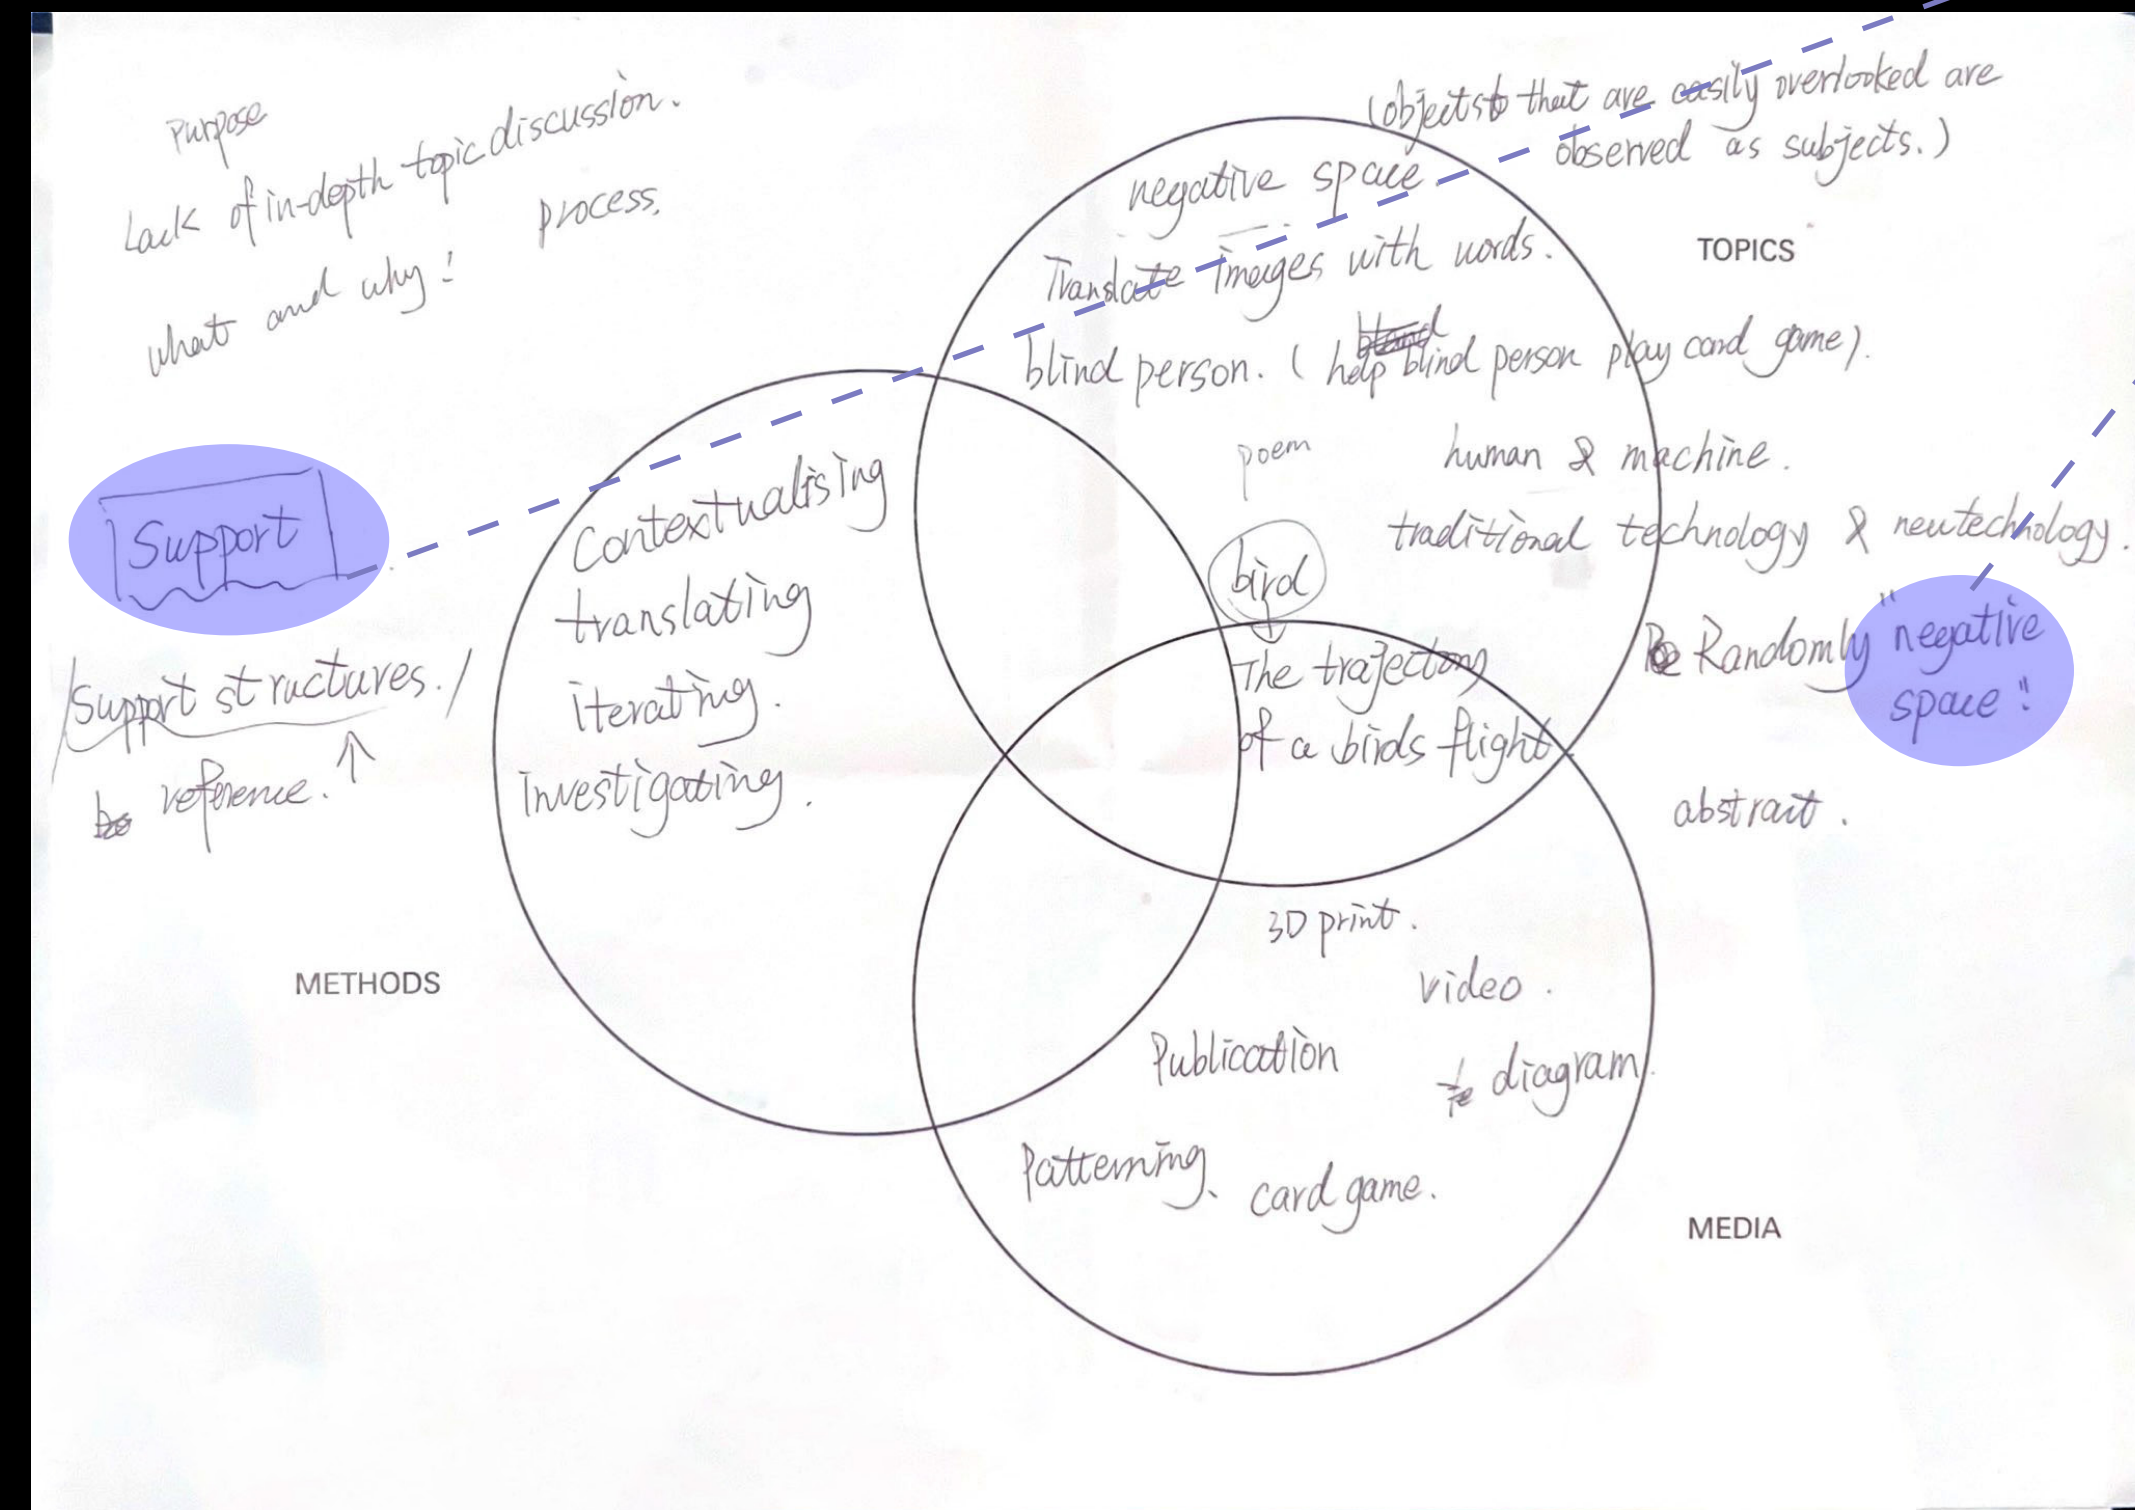 Purpose
Lack of in-depth topic discussion.
process.
what and why?
(objects that are easily overlooked are
observed as subjects.)
negative space
TOPICS
Translate images with words.
blind person. (help blind person play card game).
poem
human & machine.
traditional technology & newtechnology.
bird
The trajectory
of a birds flight
Randomly "negative
space"
abstract.
Support
Support structures.
reference. ↑
Contextualising
translating
iterating.
investigating.
METHODS
3D print.
video.
Publication
diagram.
Patterning.
card game.
MEDIA